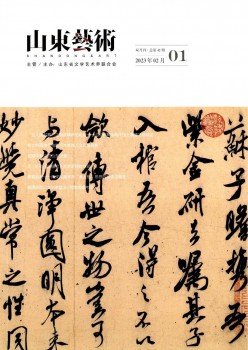 山東藝術
SHANDONG ART
主管／主办：山东省文学艺术界联合会
2023年02月
01
蘇子瞻
紫金研去嘱其子
入棺吾今得之不以
斂傳世之物豈可
与清淨圓明本来
妙覺真常之性同